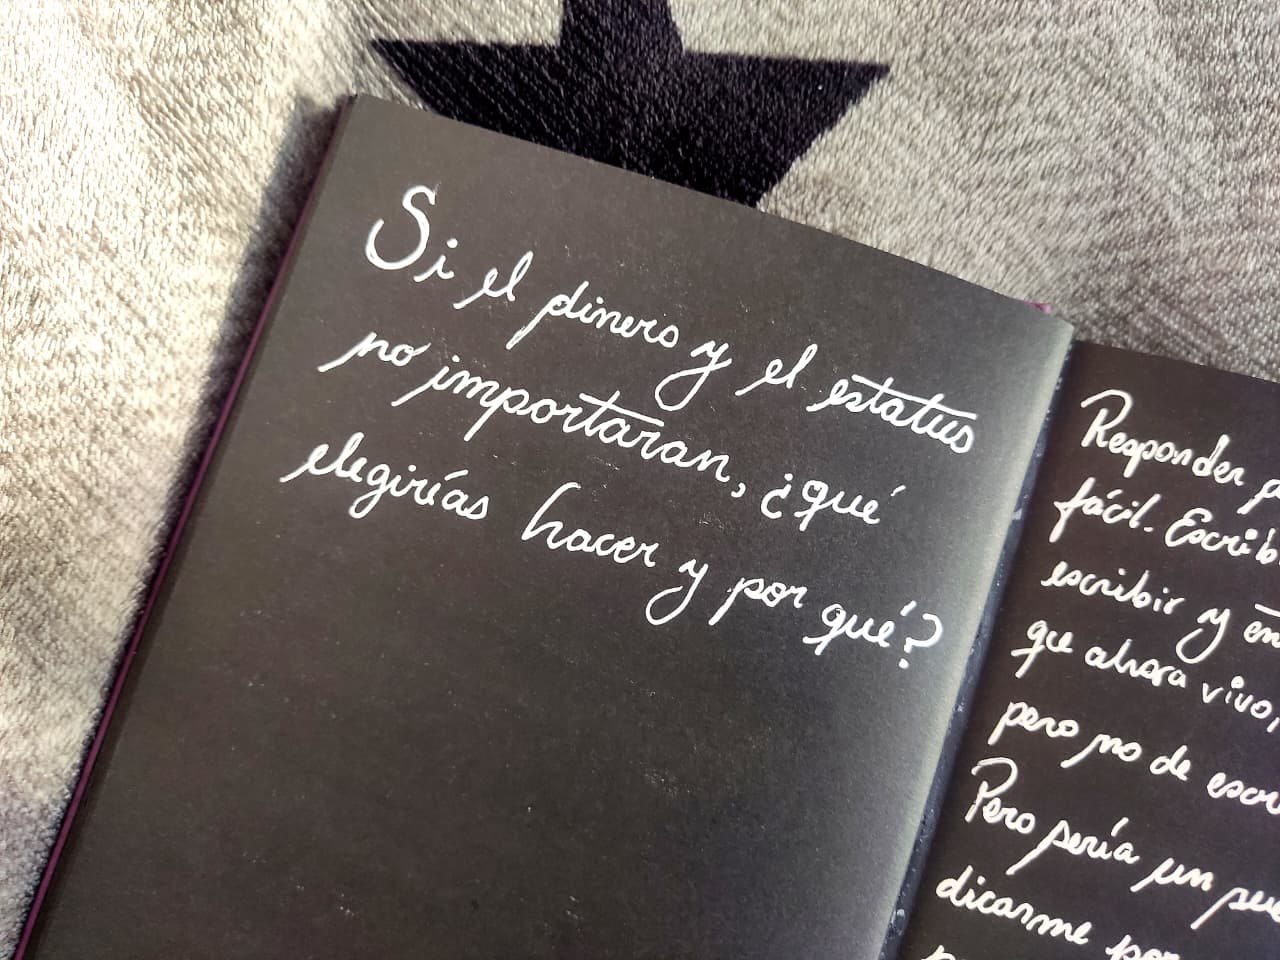 Si el dinero y el estatus
no importaran, ¿qué
elegirías hacer y por qué?
Responder
fácil.
escribir y
que ahora vivo,
pero no de
Pero sería un
dicarme por